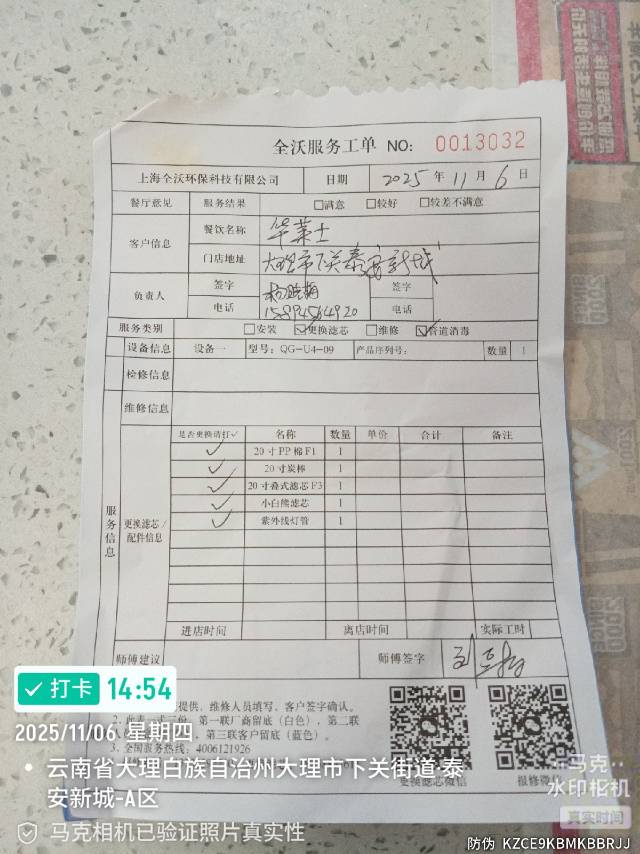 全沃服务工单 NO: 0013032
上海全沃环保科技有限公司 日期 2025 年 11 月 6 日
餐厅意见 服务结果 □满意 □较好 □较差不满意
客户信息 餐饮名称 华莱士
门店地址 大理市下关泰安新城
负责人 签字 签字
电话 15894564920 电话
服务类别 □安装 ☑更换滤芯 □维修 ☑管道消毒
设备信息 设备一 型号: QG-U4-09 产品序列号: 数量 1
检修信息
维修信息
服务信息 更换滤芯/配件信息
是否更换请打✓ 名称 数量 单价 合计 备注
✓ 20寸PP棉F1 1
✓ 20寸炭棒 1
✓ 20寸叠式滤芯F3 1
✓ 小白熊滤芯 1
✓ 紫外线灯管 1
进店时间 离店时间 实际工时
师傅建议 师傅签字
提供, 维修人员填写, 客户签字确认。
2. 此表一式三份, 第一联厂商留底(白色), 第二联
第三联客户留底(蓝色)。
3. 全国服务热线: 4006121926
更换滤芯微信 报修微信
打卡 14:54
2025/11/06 星期四
云南省大理白族自治州大理市下关街道·泰
安新城-A区
马克相机已验证照片真实性
马克
水印相机
真实时间
防伪 KZCE9KBMKBBRJJ